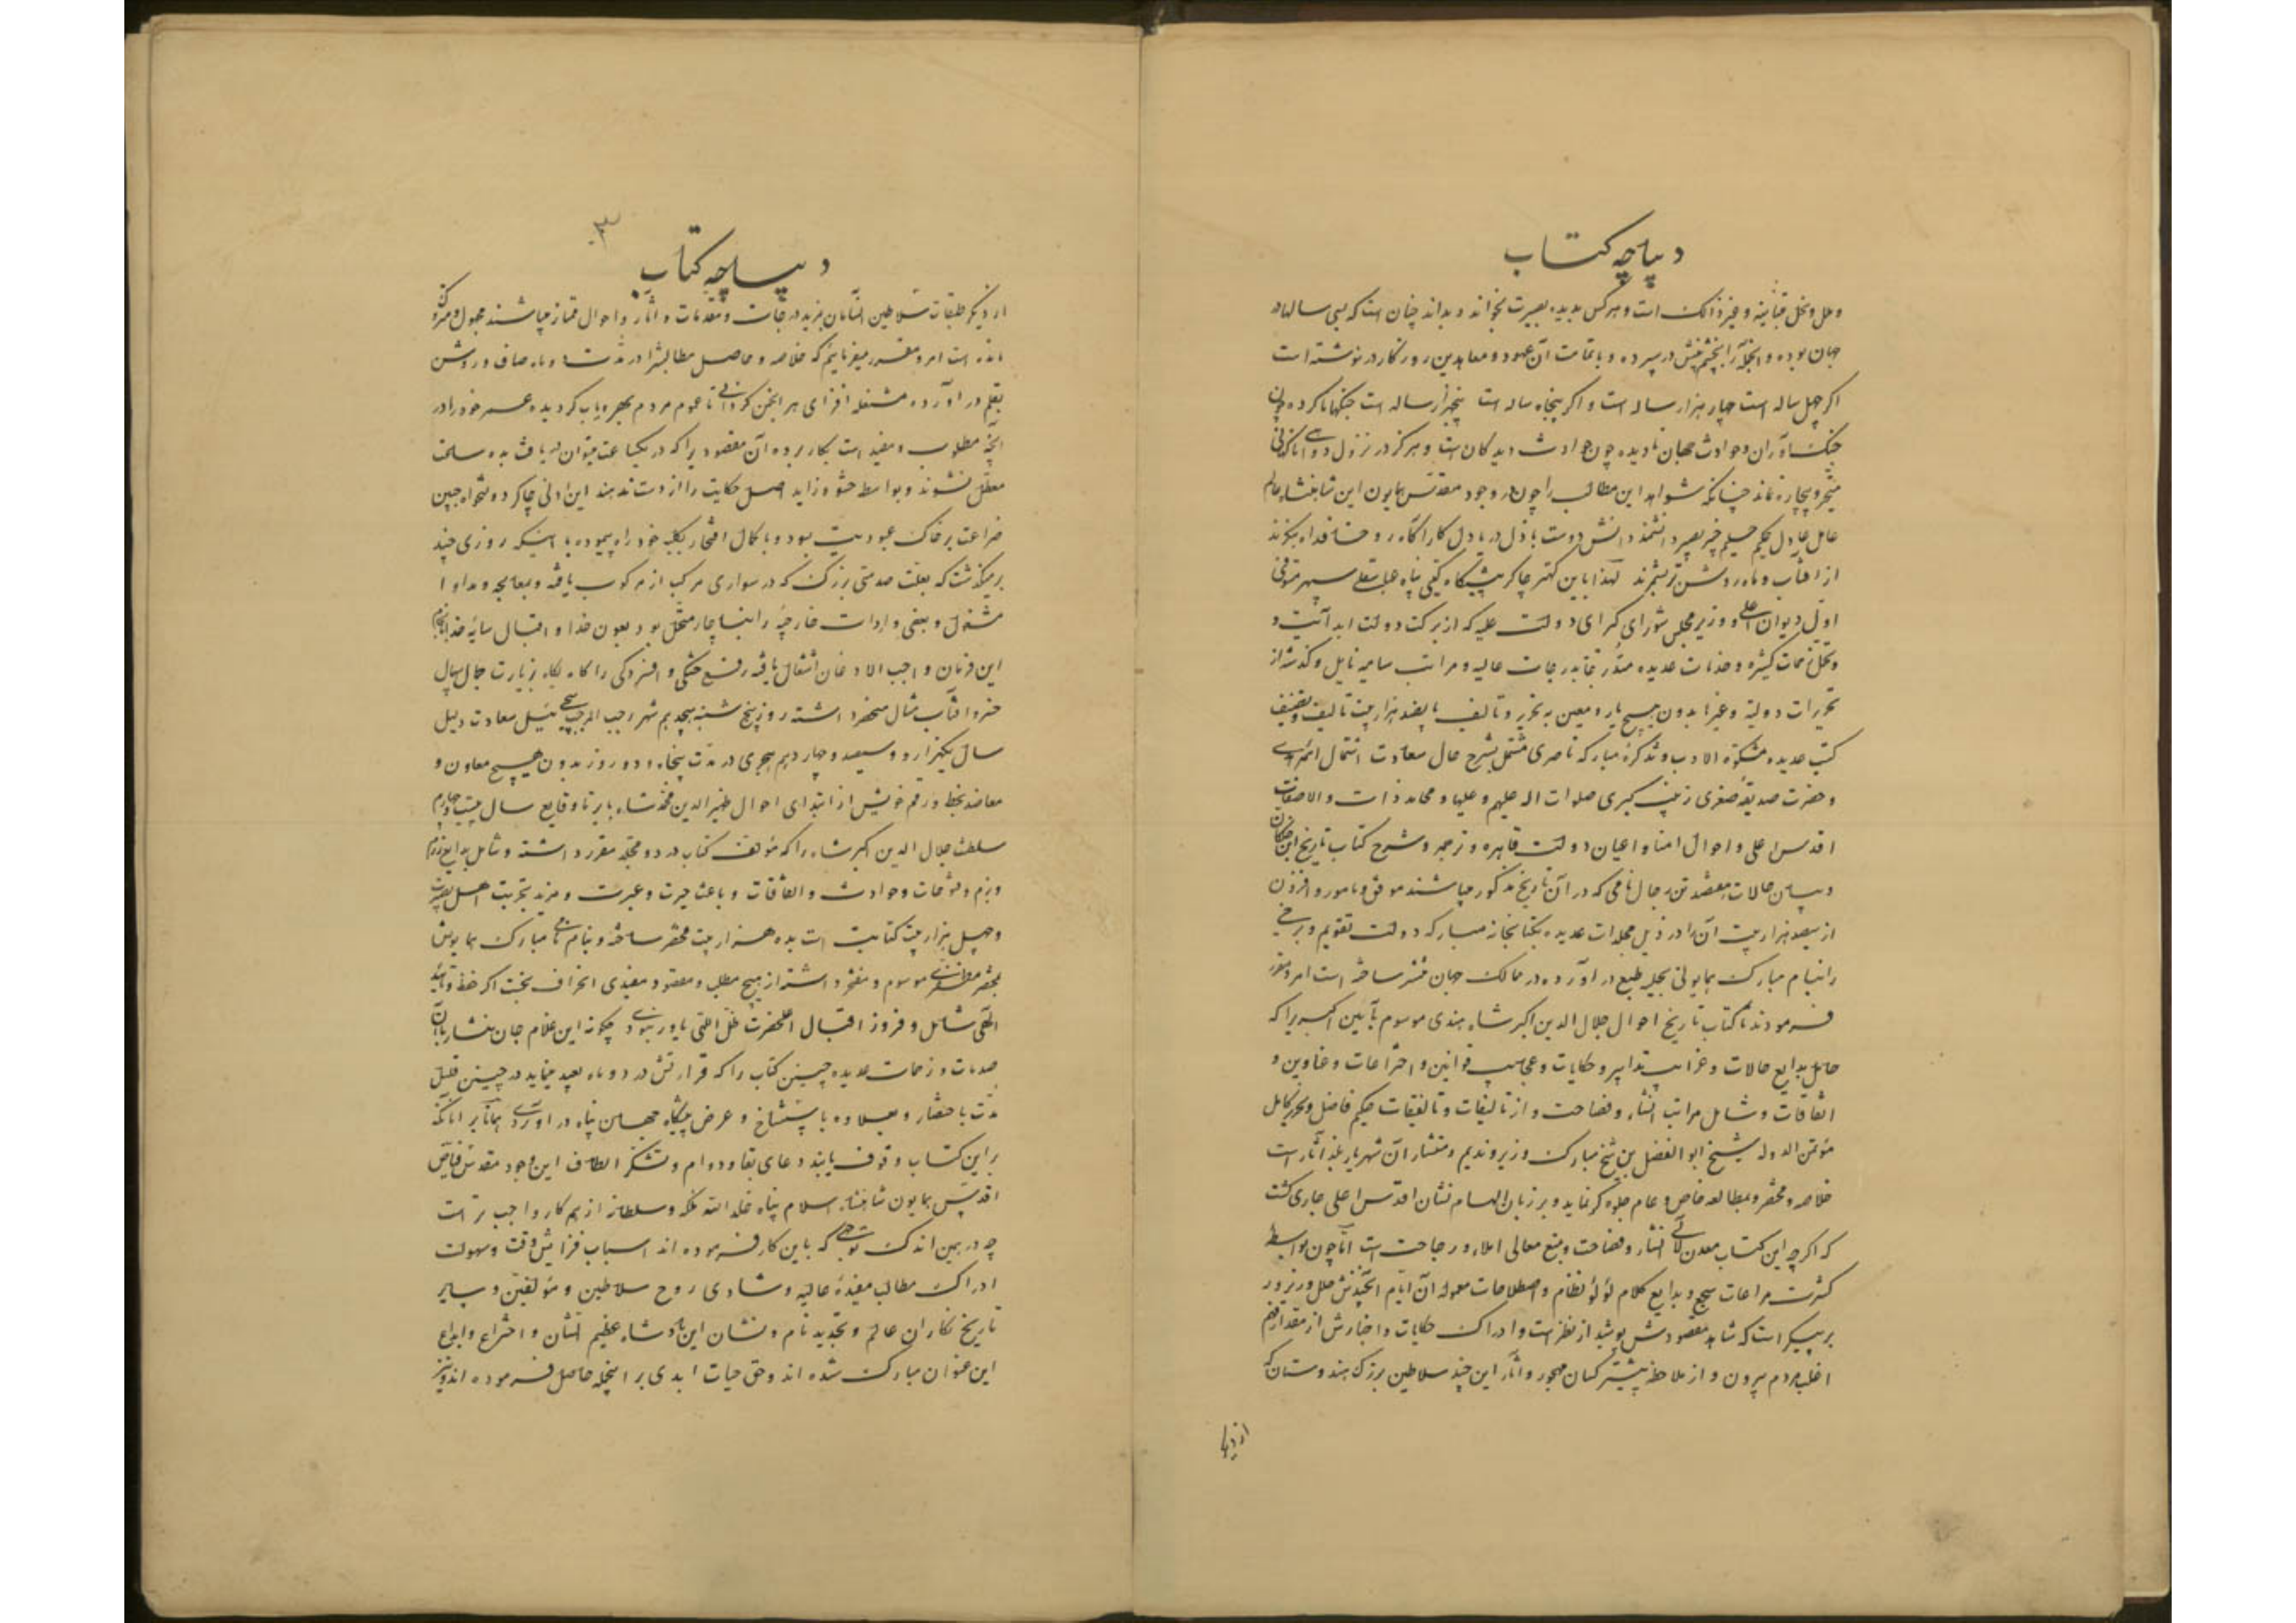 دیباچه کتاب
و ملل و نحل متباینه و غیر ذالک است و هر کس بدیده بصیرت بخواند و بداند چنان است که سی سالها در
جهان بوده و اینجمله را بچشم خویش در سپرده و با تمامت آن عهود و معاهدین روزگار در نوشته است
اگر چهل ساله است چهار هزار ساله است و اگر پنجاه ساله است پنجهزار ساله است جنگها ناکرده چون
جنگ آوران و حوادث جهان نادیده چون حوادث دیدگان است و هرگز در نزول دواهی
متحیر و بیچاره نماند چنانکه شواهد این مطالب را چون در وجود مقدس همایون این شاهنشاه عالم
عامل عادل حکیم حلیم خبیر بصیر دانشمند دانش دوست باذل دریا دل کار آگاه روحنا فداه بنگرند
از آفتاب و ماه روشن تر شمرند لهذا باین کهتر چاکر پیشگاه گیتی پناه عباسقلی سپهر مستوفی
اول دیوان اعلی و وزیر مجلس شورای کبرای دولت علیه که از برکت دولت ابد آیت و
و تحمل زحمات کثیره و خدمات عدیده متدرجا بدرجات عالیه و مراتب سامیه نایل و گذشته از
تحریرات دولتیه و غیرها بدون هیچ یار و معین به تحریر و تالیف پانصد هزار بیت تالیف و تصنیف
کتب عدیده مشکوة الادب و تذکره مبارکه ناصری مشتمل بشرح حال سعادت اشتمال ائمه هدی
و حضرت صدیقه صغری زینب کبری صلوات اله علیهم و علیها و محامد ذات والا صفات
اقدس اعلی و احوال امنا و اعیان دولت قاهره و ترجمه و شرح کتاب تاریخ ابن خلکان
و بیان حالات هفتصد تن رجال نامی که در آن تاریخ مذکور میباشند موفق و مامور و افزون
از سیصد هزار بیت آن را در ذیل مجلدات عدیده بکتابخانه مبارکه دولت تقویم و برخی
را بنام مبارک همایونی بحلیه طبع در آورده در ممالک جهان منتشر ساخته است امر و مقرر
فرمودند تا کتاب تاریخ احوال جلال الدین اکبر شاه هندی موسوم بآیین اکبری را که
حامل بدایع حالات و غرائب تدابیر و حکایات و عجایب قوانین و اختراعات و عناوین و
اتفاقات و شامل مراتب انشاء و فصاحت و از تالیفات و تالفیقات حکیم فاضل و نحریر کامل
مؤتمن الدوله شیخ ابو الفضل بن شیخ مبارک وزیر و ندیم و مستشار آن شهریار بلند آثار است
خلاصه و مختصر و بمطالعه خاص و عام جلوه گر نماید و بر زبان الهام نشان اقدس اعلی جاری گشت
که اگر چه این کتاب معدن لآلی انشاء و فصاحت و منبع معالی املاء و رجاحت است اما چون بواسطه
کثرت مراعات سجع و بدایع کلام لؤلؤ نظام و اصطلاحات معموله آن ایام
بر پیکر است که شاهد مقصودش پوشیده از نظر است و ادراک حکایات و اخبارش از مقدار فهم
اغلب مردم بیرون و از ملاحظه بیشتر کسان مهجور و آثار این چند سلاطین بزرگ هندوستان که
دیباچه کتاب
۳
از دیگر طبقات سلاطین آنسامان بمزید درجات و مقدمات و آثار و احوال ممتاز میباشند مجهول و متروک
مانده است امر و مقرر میفرمائیم که خلاصه و حاصل مطالبش را در مدت شش ماه صاف و روشن
بقلم در آورده مشغله افزای هر انجمن گردانی تا عموم مردم بهره یاب گردیده عمر خود را در
آنچه مطلوب و مفید است بکار برده آن مقصودی را که در یکساعت میتوان دریافت بده ساعت
معطل نشوند و بواسطه حشو و زاید اصل حکایت را از دست ندهند این ادنی چاکر دولتخواه جبین
ضراعت بر خاک عبودیت بسود و با کمال افتخار بکلبه خود راه پیموده با اینکه روزی چند
بر میگذشت که بعلت صدمتی بزرگ که در سواری مرکب از مرکوب یافته و بمعالجه و مداوا
مشغول و بعضی واردات خارجیه را بناچار متحمل بود بعون خدا و اقبال سایه خدا بانجام
این فرمان واجب الاذعان اشتغال یافته رفع خستگی و افسردگی را گاه بگاه بزیارت جمال بیمثال
خسرو آفتاب مثال منحصر داشته روز پنج شنبه هیجدهم شهر رجب المرجب سیچقان ئیل سعادت دلیل
سال یکهزار و سیصد و چهاردهم هجری در مدت پنجاه و دو روز بدون هیچ معاون و
معاضد بخط و رقم خویش از ابتدای احوال ظهیر الدین محمد شاه بابر تا وقایع سال بیست و چهارم
سلطنت جلال الدین اکبر شاه را که مؤلف کتاب در دو مجلد مقرر داشته و شامل بدایع رزم
و بزم و فتوحات و حوادث و اتفاقات و باعث حیرت و عبرت و مزید تجربت اهل بصیرت
و چهل هزار بیت کتابت است بده هزار بیت مختصر ساخته و بنام نامی مبارک همایونش
بمختصر مظفری موسوم و مفتخر داشته از هیچ مطلب و مقصود مفیدی انحراف نجست اگر حفظ و تایید
الهی شامل و فروز اقبال اعلیحضرت ظل اللهی یاور نبودی چگونه این غلام جان نثار با آن
صدمات و زحمات عدیده چنین کتاب را که قرائتش در دو ماه بعید مینماید در چنین قلیل
مدت باختصار و بعلاوه باستنساخ و عرض پیشگاه جهان پناه در آوردی همانا بر آنانکه
بر این کتاب وقوف یابند دعای بقا و دوام و تشکر الطاف این وجود مقدس فیاض
اقدس همایون شاهنشاه اسلام پناه خلد الله ملکه و سلطانه از هر کار واجب تر است
چه در همین اندک توجهی که باین کار فرموده اند اسباب فزایش وقت و سهولت
ادراک مطالب مفیده عالیه و شادی روح سلاطین و مؤلفین و سایر
تاریخ نگاران عالم و تجدید نام و نشان این پادشاه عظیم الشان و اختراع و ابداع
این عنوان مبارک شده اند و حق حیات ابدی بر اینجمله حاصل فرموده اند و نیز